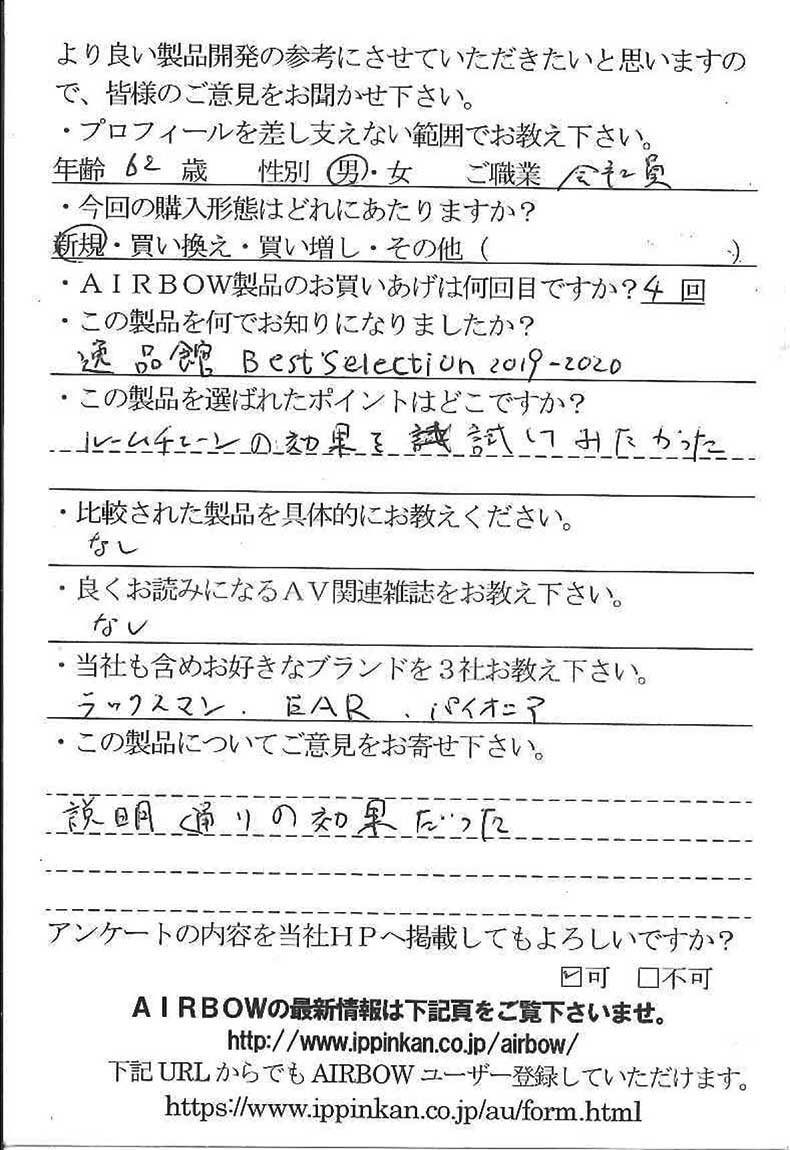 より良い製品開発の参考にさせていただきたいと思いますの
で、皆様のご意見をお聞かせ下さい。
・プロフィールを差し支えない範囲でお教え下さい。
年齢 62 歳 性別 男・女 ご職業 会社員
・今回の購入形態はどれにあたりますか？
新規・買い換え・買い増し・その他（ ）
・ＡＩＲＢＯＷ製品のお買いあげは何回目ですか？4 回
・この製品を何でお知りになりましたか？
逸品館 Best Selection 2019-2020
・この製品を選ばれたポイントはどこですか？
ルームチューンの効果を試してみたかった
・比較された製品を具体的にお教えください。
なし
・良くお読みになるＡＶ関連雑誌をお教え下さい。
なし
・当社も含めお好きなブランドを３社お教え下さい。
ラックスマン．EAR．パイオニア
・この製品についてご意見をお寄せ下さい。
説明通りの効果だった
アンケートの内容を当社ＨＰへ掲載してもよろしいですか？
☑可 □不可
ＡＩＲＢＯＷの最新情報は下記頁をご覧下さいませ。
http://www.ippinkan.co.jp/airbow/
下記 URL からでも AIRBOW ユーザー登録していただけます。
https://www.ippinkan.co.jp/au/form.html